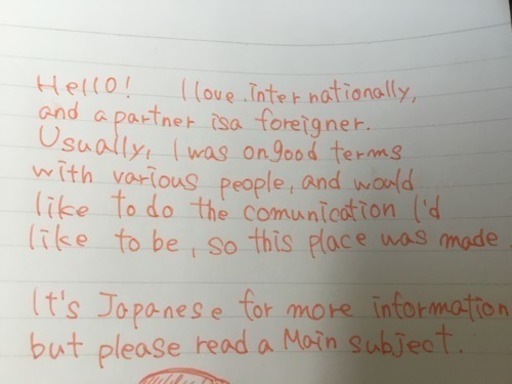 Hello! I love internationally,
and a partner is a foreigner.
Usually, I was on good terms
with various people, and would
like to do the comunication I'd
like to be, so this place was made.
It's Japanese for more information
but please read a Main subject.